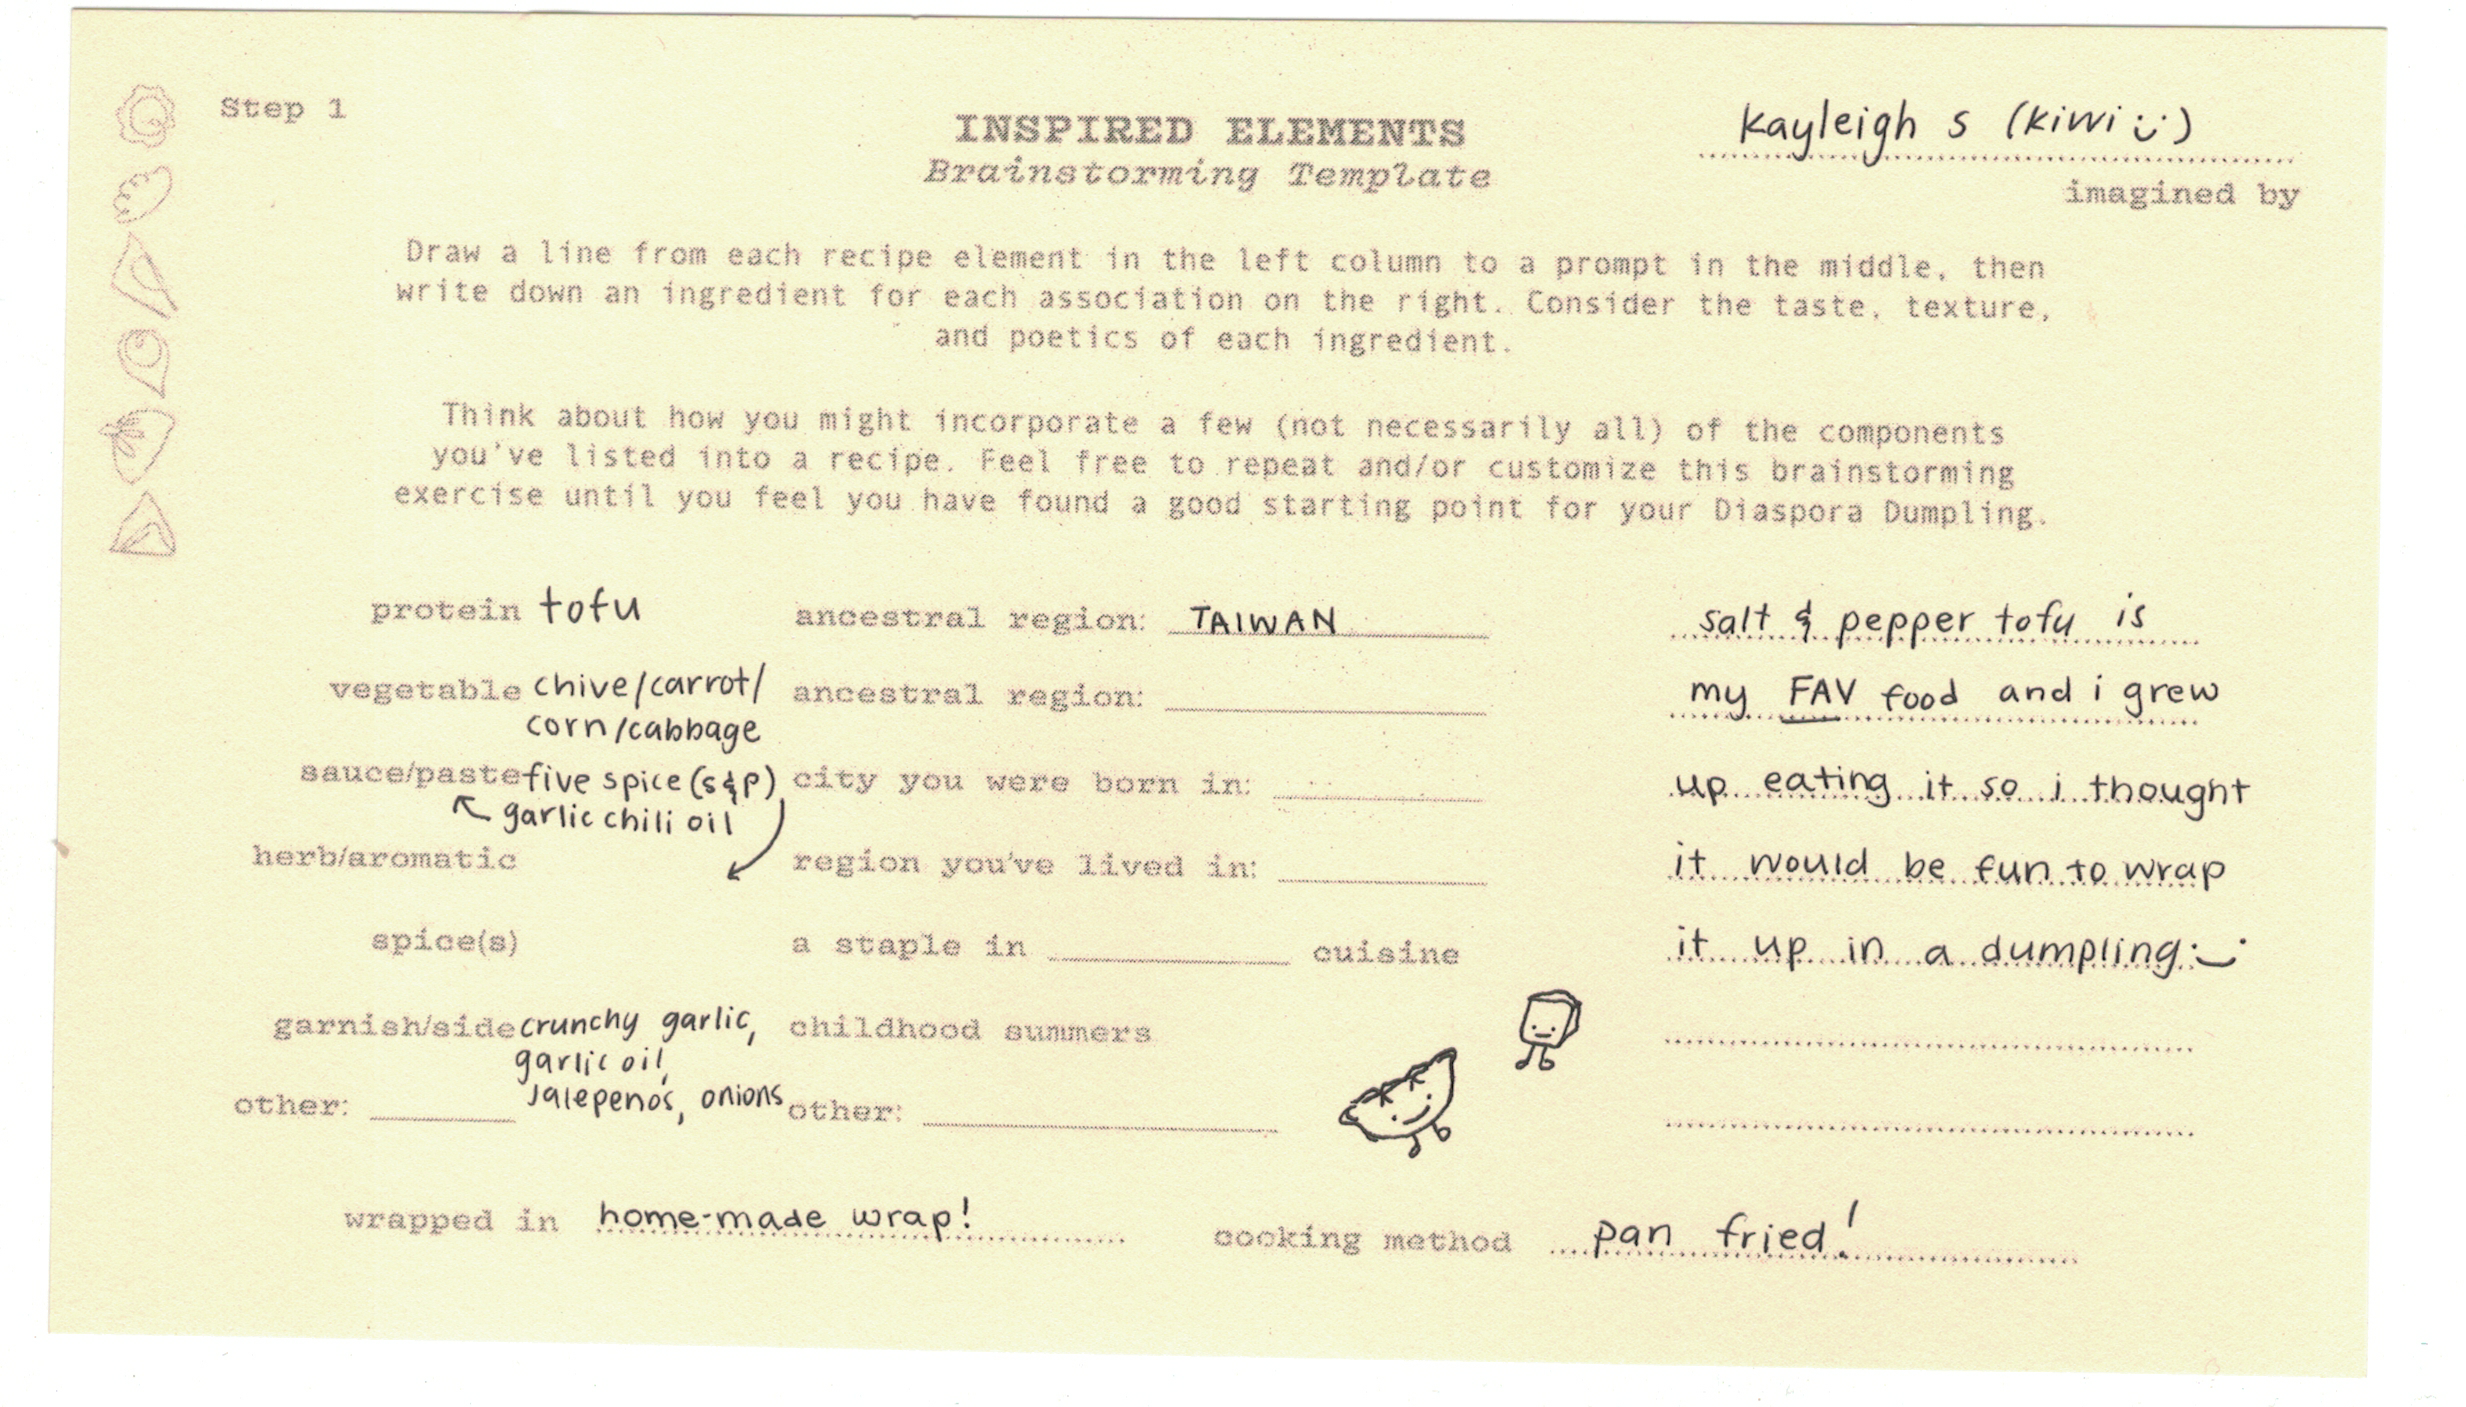 Step 1
INSPIRED ELEMENTS
Brainstorming Template
kayleigh s (kiwi :))
imagined by
Draw a line from each recipe element in the left column to a prompt in the middle, then
write down an ingredient for each association on the right. Consider the taste, texture,
and poetics of each ingredient.
Think about how you might incorporate a few (not necessarily all) of the components
you've listed into a recipe. Feel free to repeat and/or customize this brainstorming
exercise until you feel you have found a good starting point for your Diaspora Dumpling.
protein tofu
vegetable chive/carrot/
corn/cabbage
sauce/paste five spice (s&p)
garlic chili oil
herb/aromatic
spice(s)
garnish/side crunchy garlic,
garlic oil,
Jalepenos, onions
other:
ancestral region: TAIWAN
ancestral region:
city you were born in:
region you've lived in:
a staple in cuisine
childhood summers
other:
salt & pepper tofu is
my FAV food and i grew
up eating it so i thought
it would be fun to wrap
it up in a dumpling :)
wrapped in home-made wrap!
cooking method pan fried!